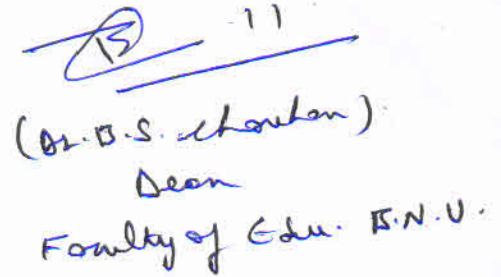 (Dr. B.S. Chouhan)
Dean
Faculty of Edu. B.N.U.